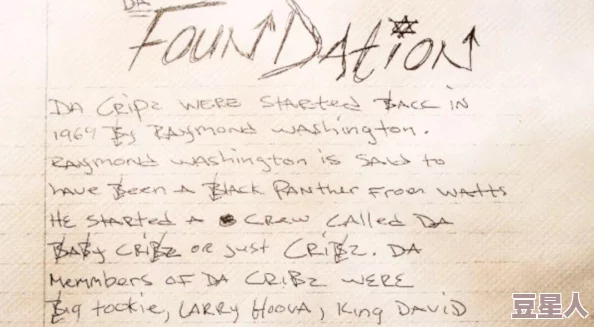 DA
FounDAtioN
DA CRipz WERE StARted BACK IN
1969 By RAymond WAshington.
RAymond WAshington is SAid to
have Been A BlAck PANtheR FRom WAtts
HE StARted A CREW CAlled DA
BABy CRiBz OR just CRiBz. DA
Memmbers OF DA CRiBz WERE
Big tookie, LARRY HOOVA, King DAVID
豆星人